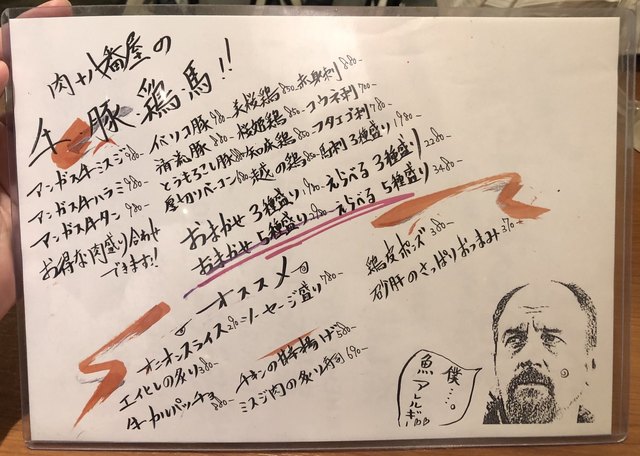 肉十八番屋の
牛、豚、鶏、馬!!
アンガス牛ミスジ980-
アンガス牛ハラミ980-
アンガス牛タン 980-
お得な肉盛り合わせ
できます!!
イベリコ豚980- 美桜鶏850-
清流豚 880- 桜姫鶏 880-
とうもろこし豚 知床鶏
厚切りベーコン 越の鶏
コウネ刺 700-
フタエゴ刺 780-
馬刺 3種盛り 1980-
おまかせ 3種盛り 1980- えらべる 3種盛り 2280-
おまかせ 5種盛り 2980- えらべる 5種盛り 3480-
オススメ
オニオンスライス290- ソーセージ盛り 980-
エイヒレの炙り 380- チキンの唐揚げ 580-
牛カルパッチョ 880- ミスジ肉の炙り寿司 690-
鶏皮ポン酢 380-
砂肝のさっぱりおつまみ 390-
僕…。
魚アレルギー